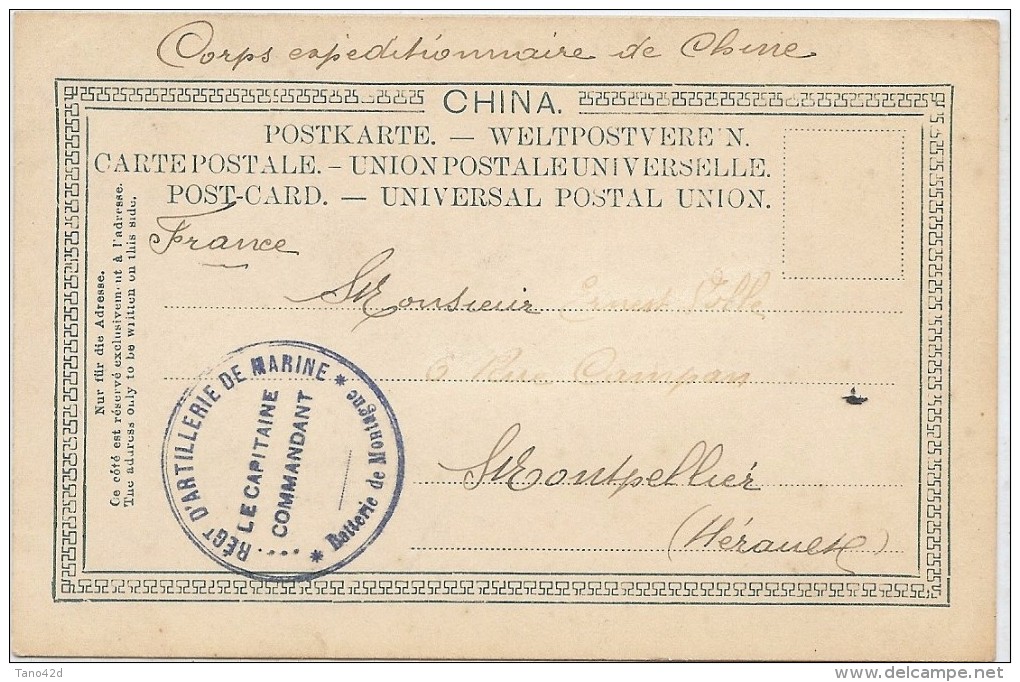 Corps expeditionnaire de Chine
CHINA.
POSTKARTE. — WELTPOSTVERE'N.
CARTE POSTALE. - UNION POSTALE UNIVERSELLE.
POST-CARD. — UNIVERSAL POSTAL UNION.
Nur für die Adresse.
Ce côté est réservé exclusivement à l'adresse.
The address only to be written on this side.
France
Monsieur Ernest
6 Rue Campan
Montpellier
(Hérault)
RÉGT D'ARTILLERIE DE MARINE
LE CAPITAINE
COMMANDANT
* Batterie de Montagne *
Tano42d
www.delcampe.net